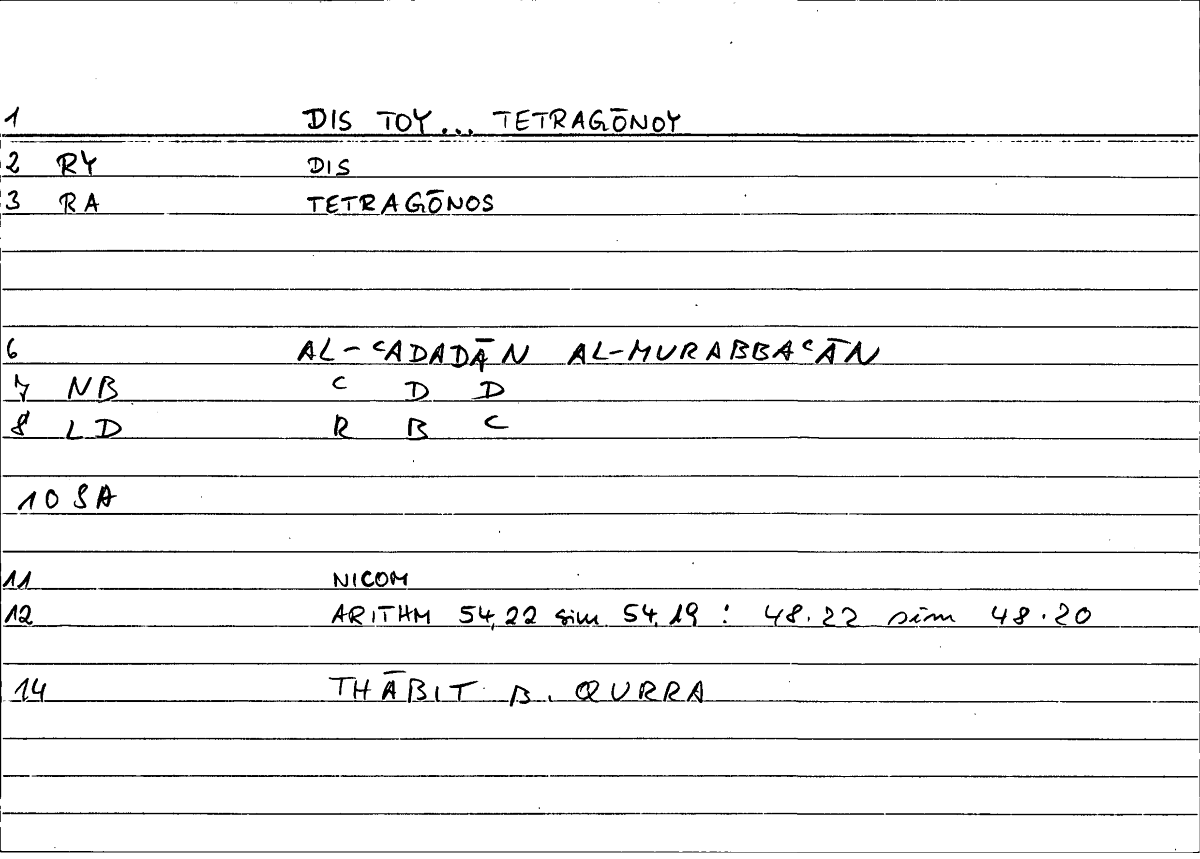 1 DIS TOY... TETRAGŌNOY
2 RY DIS
3 RA TETRAGŌNOS
6 AL-ᶜADADĀN AL-MURABBAᶜĀN
7 NB ᶜ D D
8 LD R B ᶜ
10 SA
11 NICOM
12 ARITHM 54,22 sim 54,19 : 48.22 sim 48.20
14 THĀBIT B. QURRA